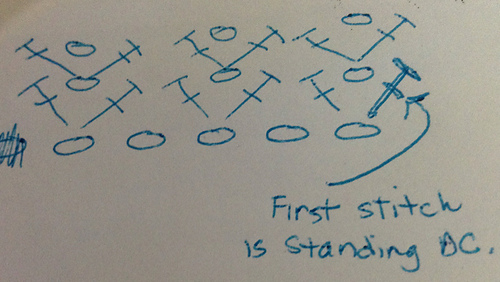 First stitch
is Standing DC.